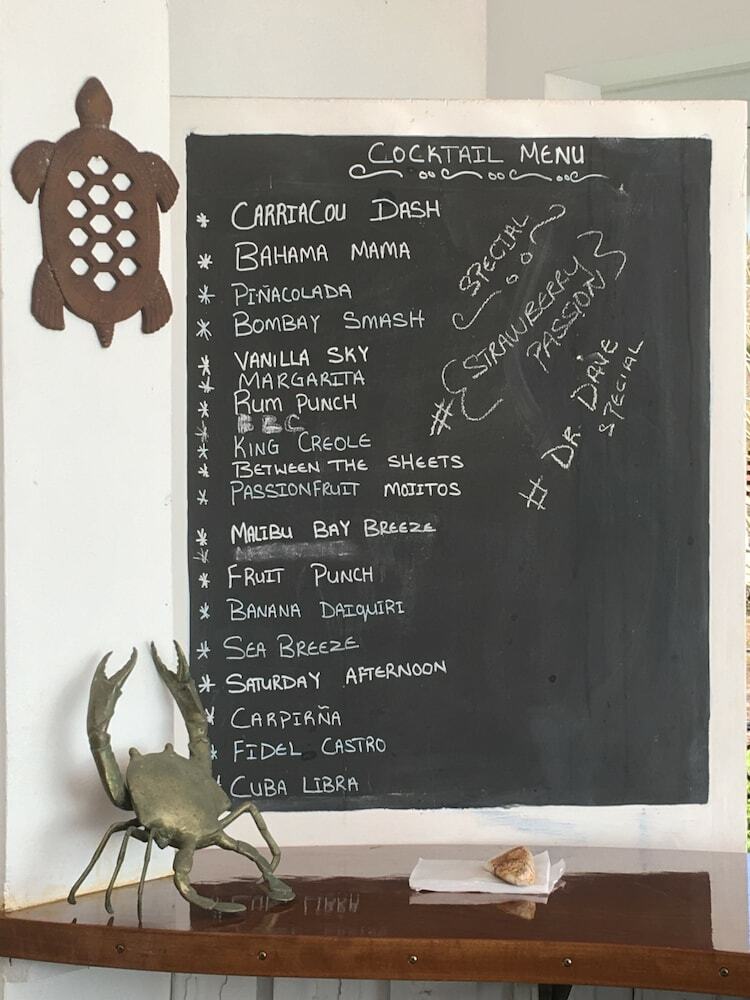 COCKTAIL MENU
* CARRIACOU DASH
* BAHAMA MAMA
* PIÑACOLADA
* BOMBAY SMASH
* VANILLA SKY
* MARGARITA
* RUM PUNCH
* BBC
* KING CREOLE
* BETWEEN THE SHEETS
* PASSIONFRUIT MOJITOS
* MALIBU BAY BREEZE
* FRUIT PUNCH
* BANANA DAIQUIRI
* SEA BREEZE
* SATURDAY AFTERNOON
* CARPIRÑA
* FIDEL CASTRO
CUBA LIBRA
SPECIAL
# STRAWBERRY
PASSION
# DR. DAVE
SPECIAL